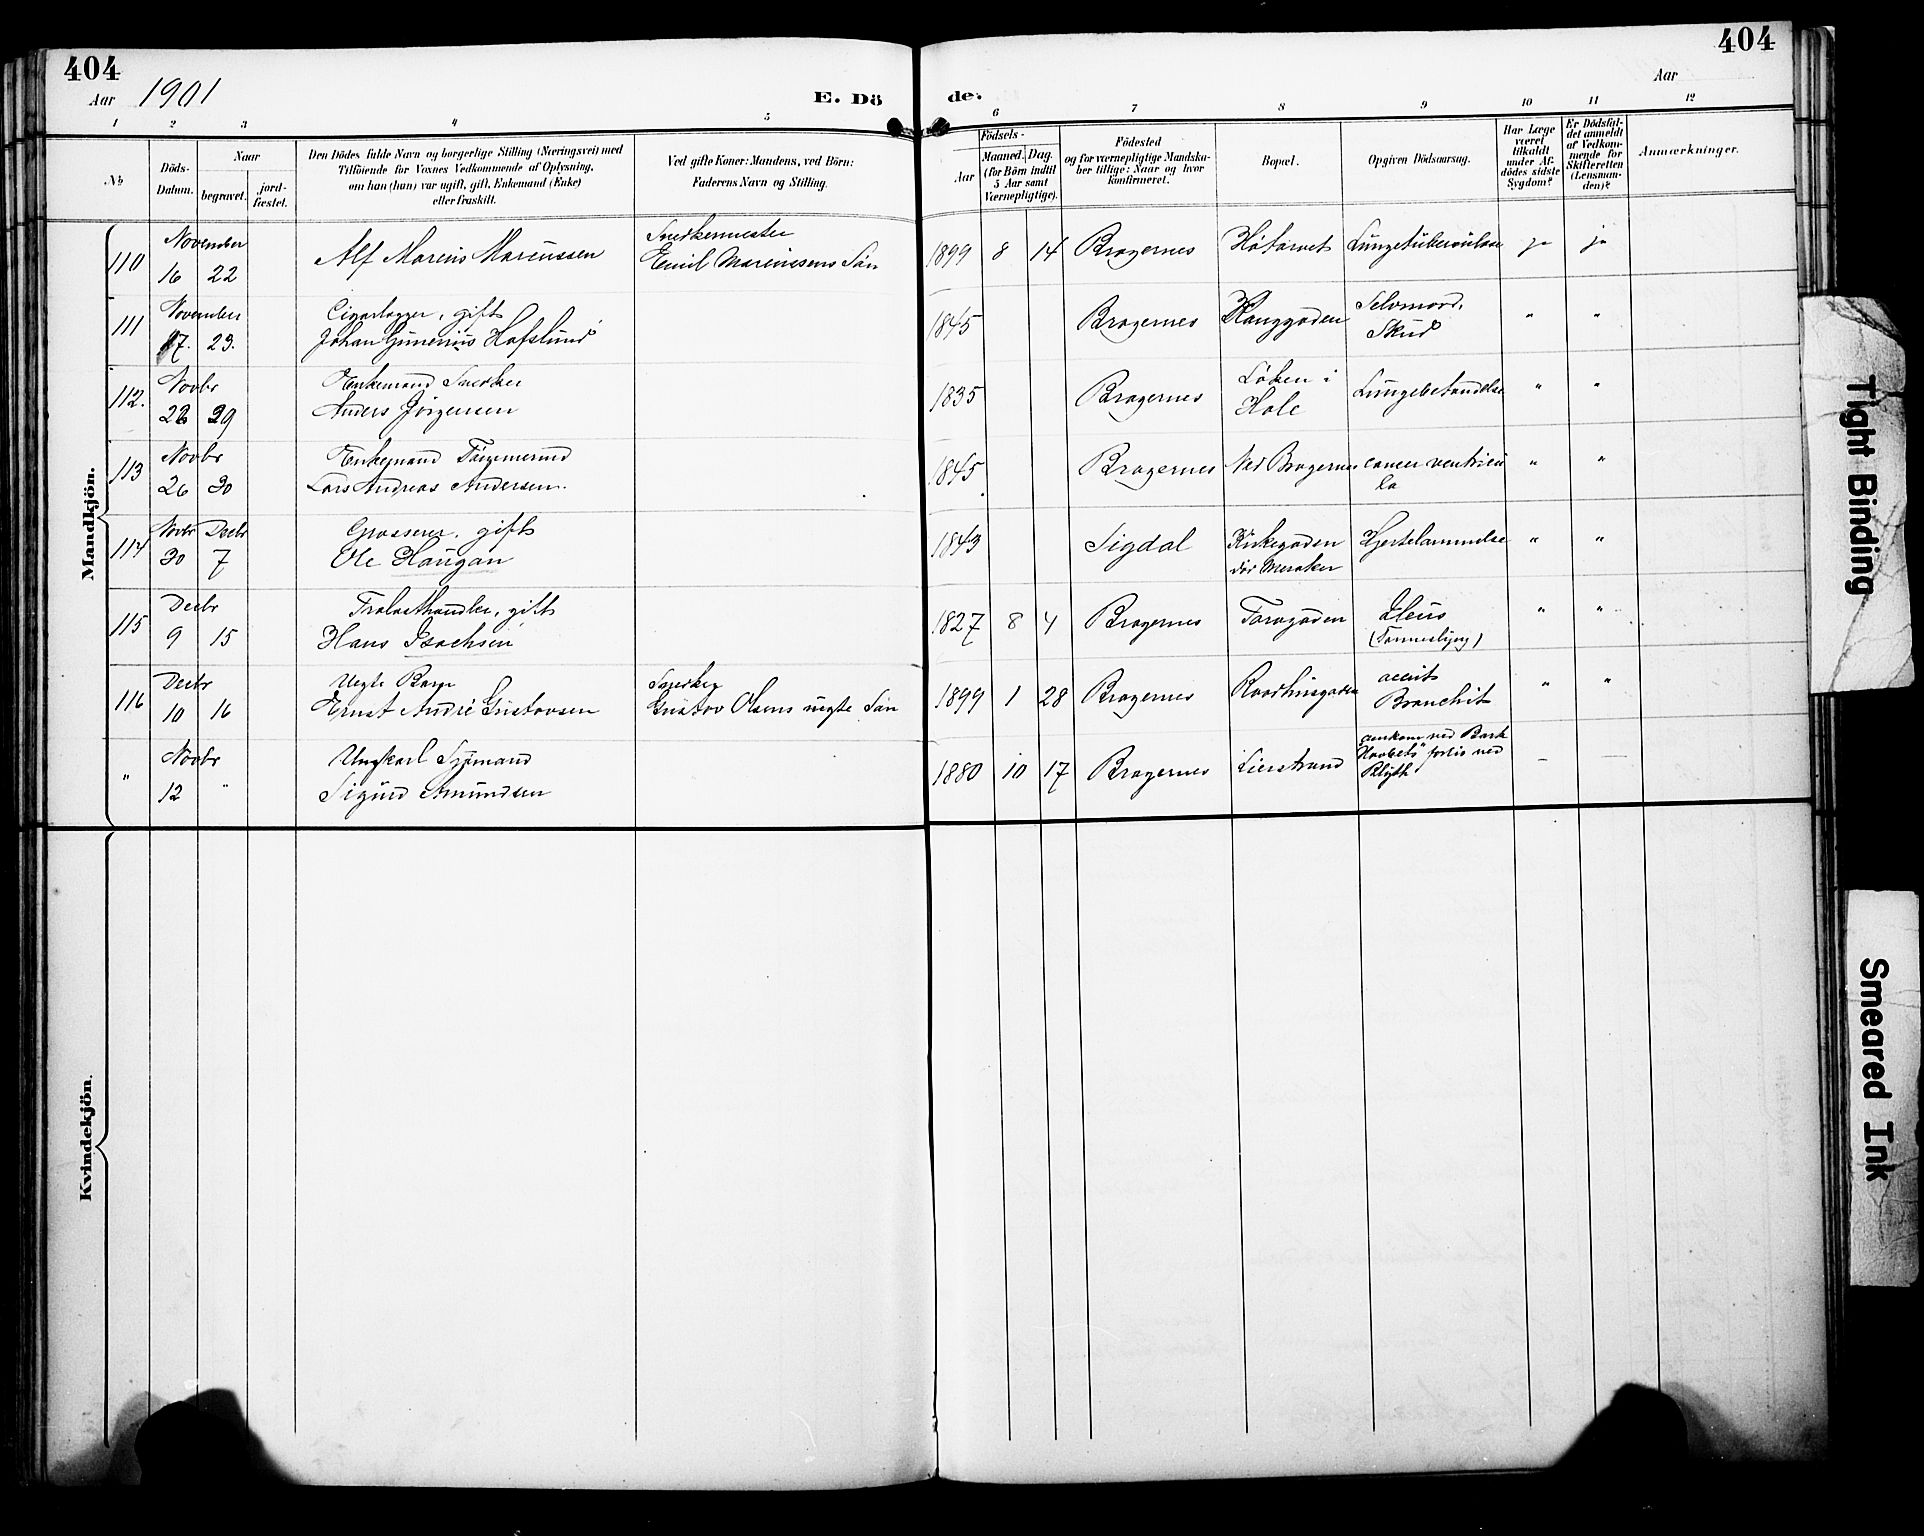 404
404
Aar 1901
E. Dö
de.
Aar
1 2 3 4 5 6 7 8 9 10 11 12
No
Döds-
Datum.
Naar
begravet.
jord-
fæstet.
Den Dödes fulde Navn og borgerlige Stilling (Næringsvei) med
Tilföiende for Voxnes Vedkommende af Oplysning,
om han (hun) var ugift, gift, Enkemand (Enke)
eller fraskilt.
Ved gifte Koner: Mandens, ved Börn:
Faderens Navn og Stilling.
Födsels-
Aar
Maaned. Dag.
(for Börn indtil
5 Aar samt
Værnepligtige).
Födested
og for værnepligtige Mandska-
ber tillige: Naar og hvor
konfirmeret.
Bopæl.
Opgiven Dödsaarsag.
Har Læge
været
tilkaldt
under Af-
dödes sidste
Sygdom?
Er Dödsfal-
det anmeldt
af Vedkom-
mende for
Skifteretten
(Lensman-
den)?
Anmærkninger.
Mandkjön.
110 November 16 22
Alf Marius Marcussen
Snedkermester
Emil Marcussens Sön
1899 8 14 Bragernes Lungetuberculose ja ja
111 November 17. 23.
gift
Johan Hafslund
1845 Bragernes Selvmord,
Skud " "
112. Novbr 29
Enkemand Snedker
Anders Jörgensen
1835 Bragernes Løken i
Hole Lungebetændelse " "
113 Novbr 26 30
Enkemand
Lars Andreas Andersen.
1845 Bragernes Ved Bragernes cancer ventricu
la " "
114 Novbr 30 Decbr 7
Grosserer, gift
Ole Haugan
1843 Sigdal Kirkegaden
Hjertelammelse " "
115 Decbr 9 15
Trælasthandler, gift
Hans Isachsen
1827 8 4 Bragernes Ileus
" "
116 Decbr 10 16
Uegte Barn
Ernst André Gustavsen
Snedker
Gustav Olsens uegte Sön
1899 1 28 Bragernes Raadhusgaden acut
Bronchit " "
" Novbr 12 "
Ungkarl Sjömand
Sigurd Amundsen
1880 10 17 Bragernes Lierstrand omkom ved Bark
"Haabets" forlis ved
Blyth — —
Kvindekjön.
Tight Binding
Smeared Ink